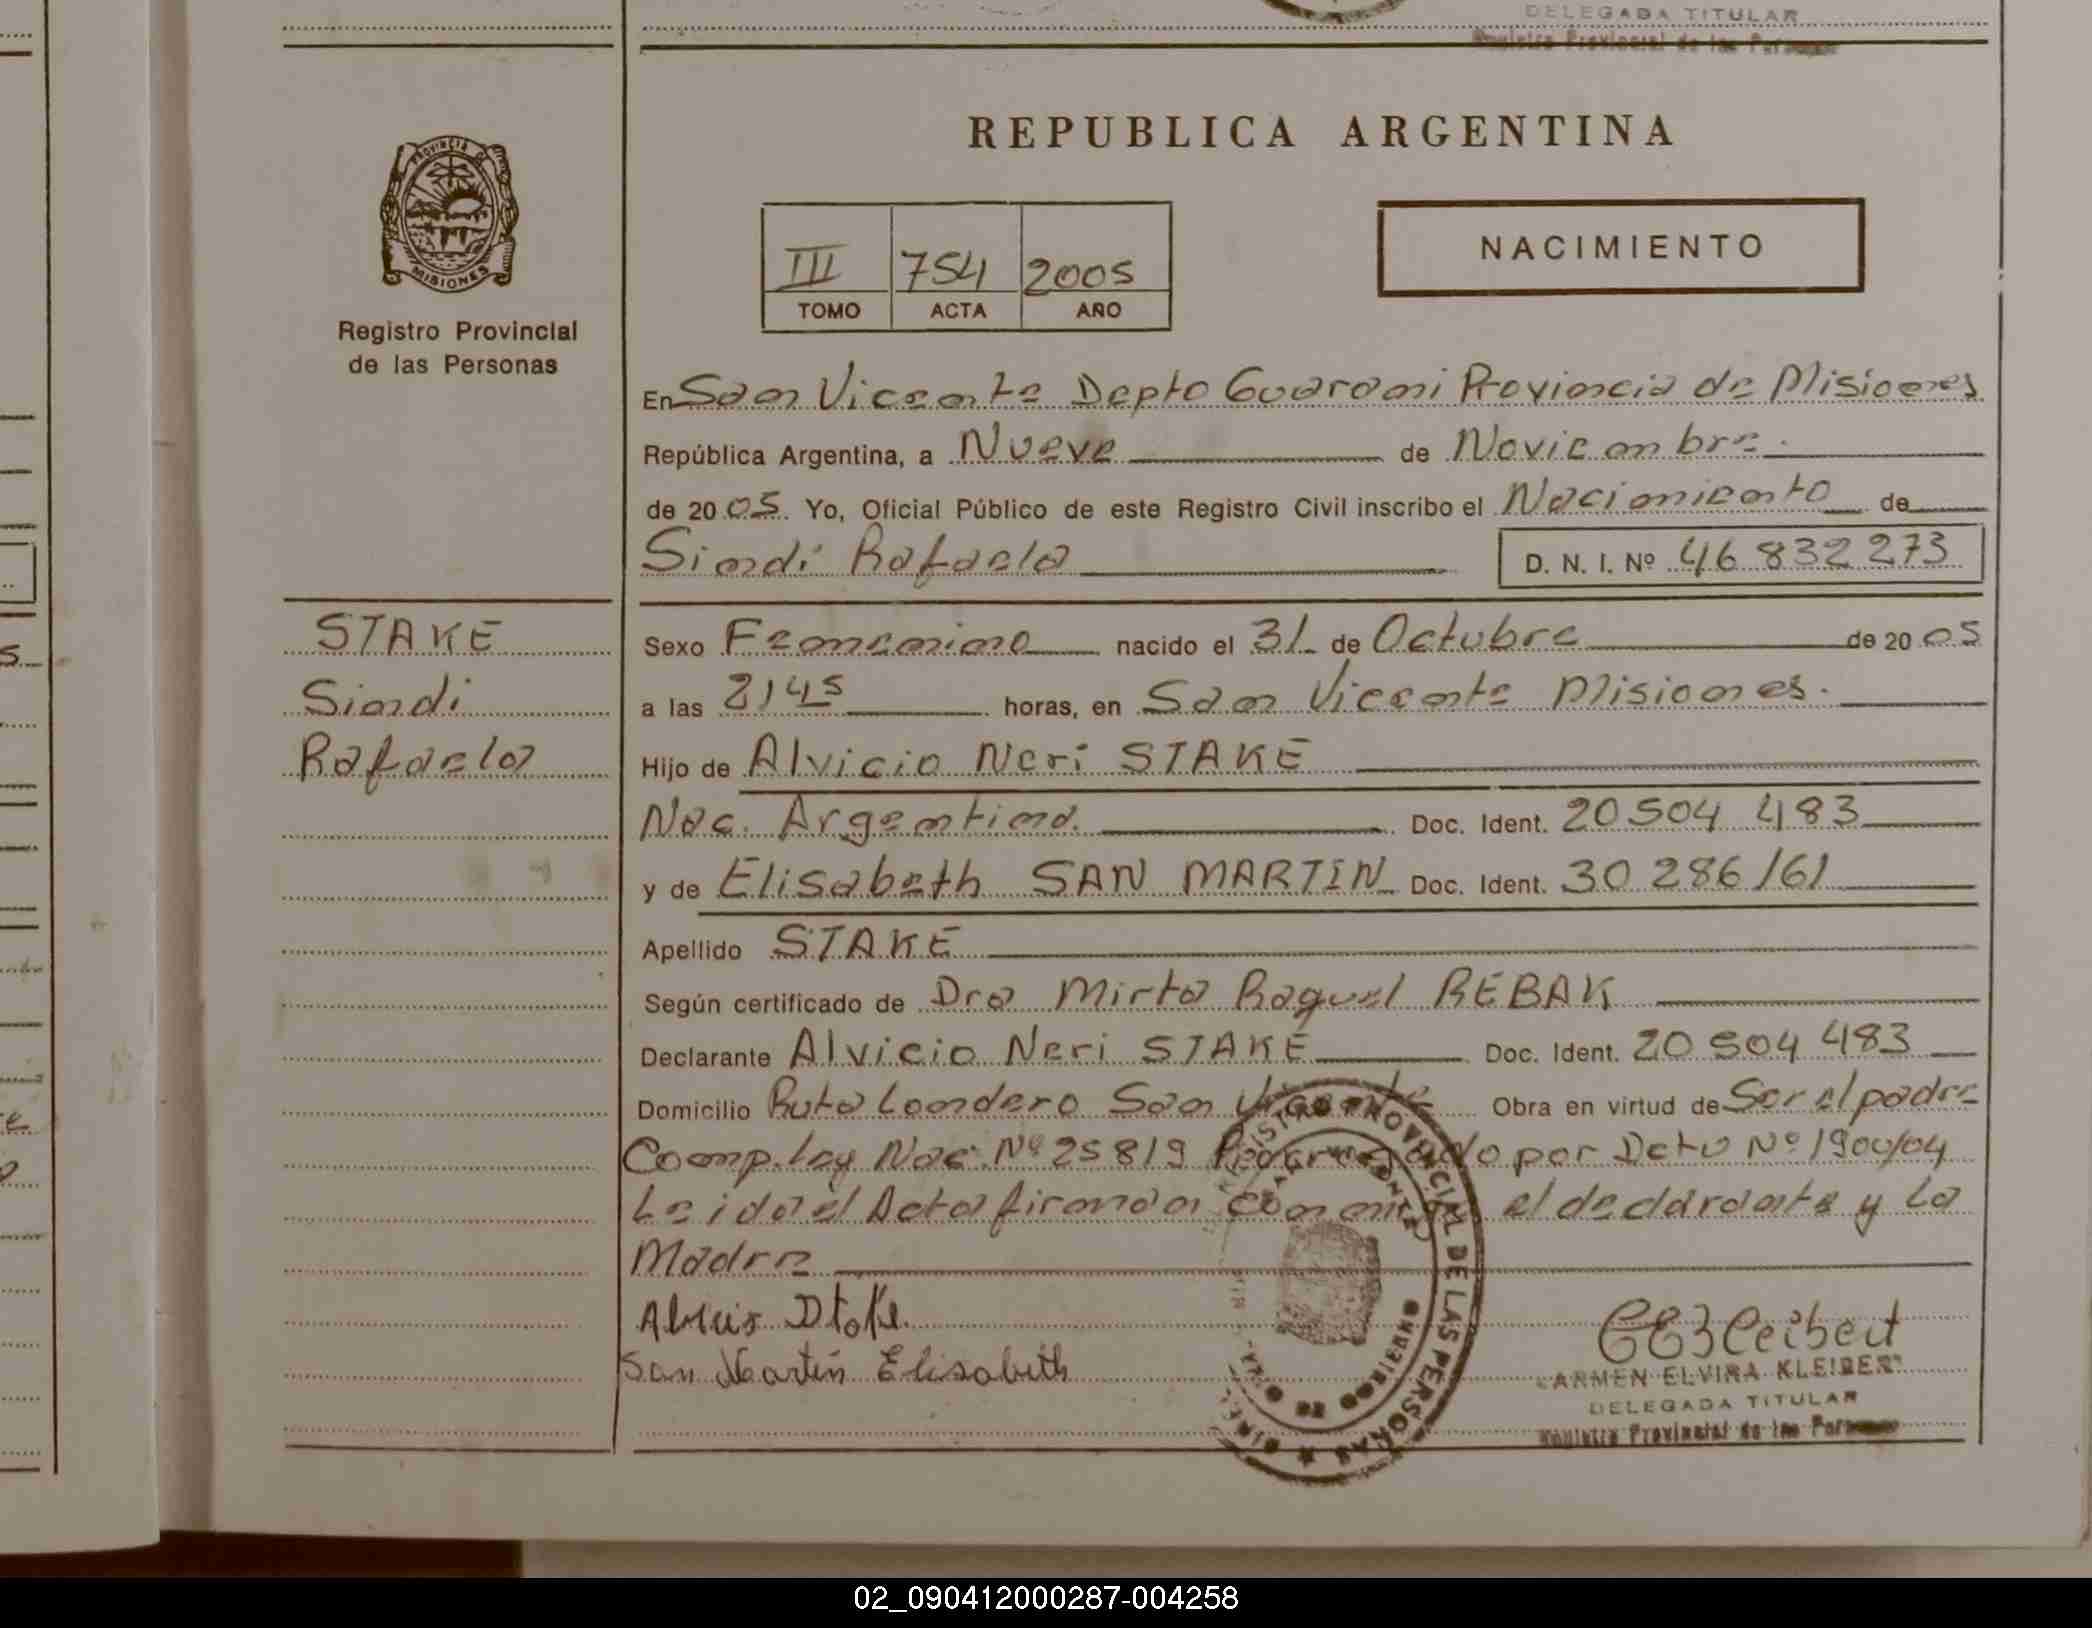 DELEGADA TITULAR
Registro Provincial de las Personas
REPUBLICA ARGENTINA
PROVINCIA DE
MISIONES
Registro Provincial
de las Personas
NACIMIENTO
III 754 2005
TOMO ACTA AÑO
En San Vicente Depto Guarani Provincia de Misiones
República Argentina, a Nueve de Noviembre.
de 2005. Yo, Oficial Público de este Registro Civil inscribo el Nacimiento de
Sindi Rafaela D. N. I. Nº 46 832 273
STAKE
Sindi
Rafaela
Sexo Femenino nacido el 31 de Octubre de 20 05
a las 2145 horas, en San Vicente Misiones.
Hijo de Alvicio Neri STAKE
Nac. Argentina. Doc. Ident. 20 504 483
y de Elisabeth SAN MARTIN Doc. Ident. 30 286 161
Apellido STAKE
Según certificado de Dra Mirta Raquel REBAK
Declarante Alvicio Neri STAKE Doc. Ident. 20 504 483
Domicilio Ruta Londero San Vicente Obra en virtud de Ser el padre
Comp. Ley Nac. Nº 25819 por Dcto Nº 1900/04
Leida el Acta firman conmigo el declarante y La
Madre
San Martin Elisabeth
REGISTRO PROVINCIAL DE LAS PERSONAS
CARMEN ELVIRA KLEIBERT
DELEGADA TITULAR
Registro Provincial de las Personas
02_090412000287-004258